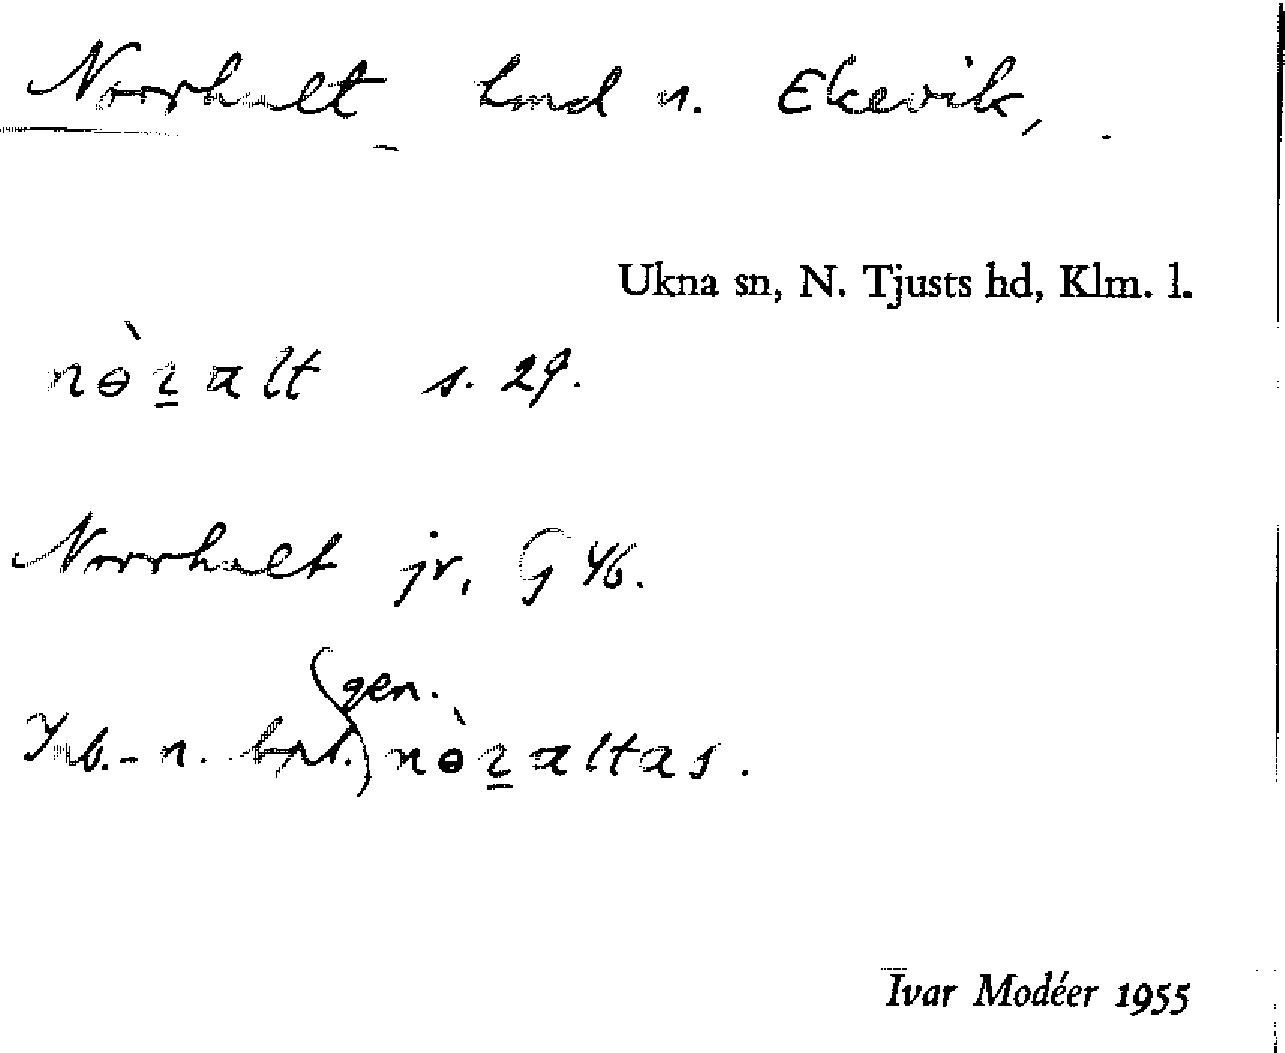 Norrhult hmd u. Ekevik,
Ukna sn, N. Tjusts hd, Klm. l.
nɵ̀ꝛalt s. 29.
Norrhult jr, G 46.
gen.
Inb.-n. nɵ̀ꝛaltas.
Ivar Modéer 1955